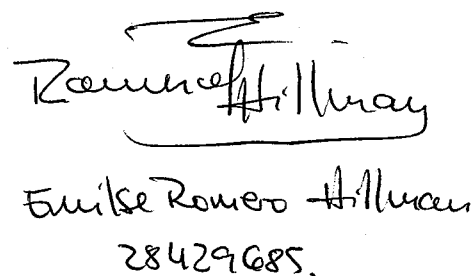 Romero Hillman
Emilse Romero Hillman
28429685.